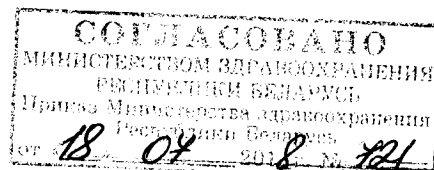 СОГЛАСОВАНО
МИНИСТЕРСТВОМ ЗДРАВООХРАНЕНИЯ
РЕСПУБЛИКИ БЕЛАРУСЬ
Приказ Министерства здравоохранения
Республики Беларусь
от 18 07 2018 г. № 721